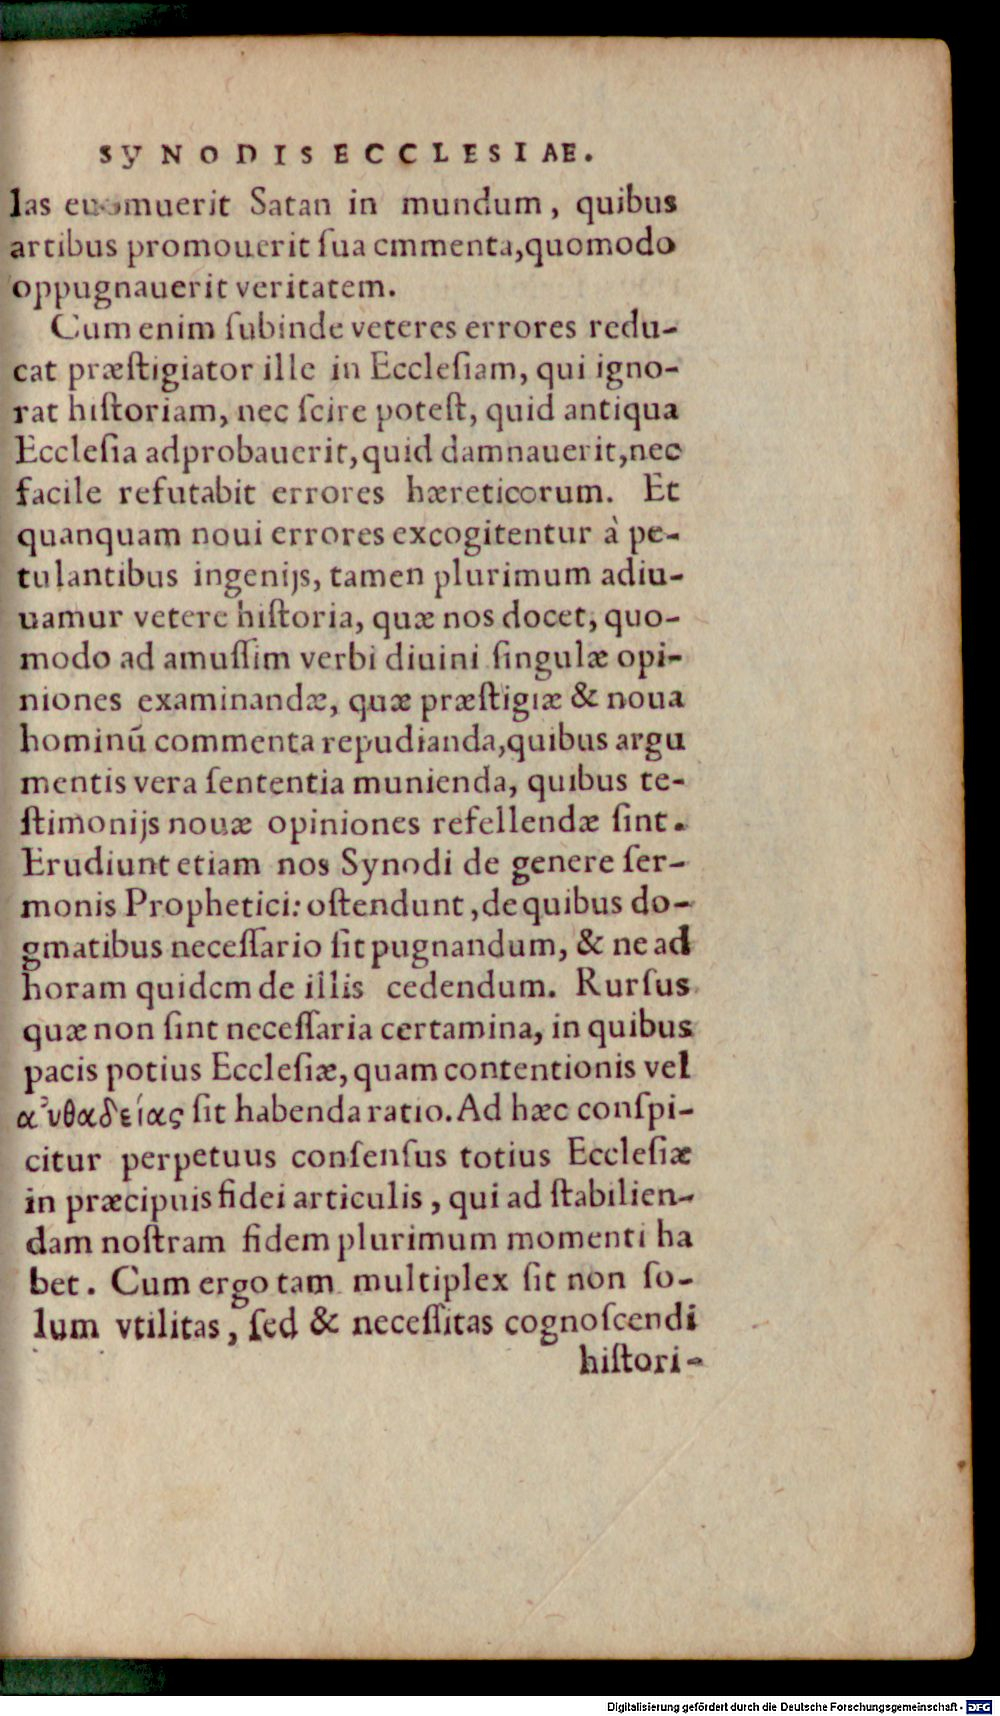 SYNODIS ECCLESIAE.
las euomuerit Satan in mundum, quibus
artibus promouerit ſua cmmenta,quomodo
oppugnauerit veritatem.
Cum enim ſubinde veteres errores redu-
cat præſtigiator ille in Eccleſiam, qui igno-
rat hiſtoriam, nec ſcire poteſt, quid antiqua
Eccleſia adprobauerit,quid damnauerit,nec
facile refutabit errores hæreticorum. Et
quanquam noui errores excogitentur à pe-
tulantibus ingenijs, tamen plurimum adiu-
uamur vetere hiſtoria, quæ nos docet, quo-
modo ad amuſſim verbi diuini ſingulæ opi-
niones examinandæ, quæ præſtigiæ & noua
hominũ commenta repudianda,quibus argu
mentis vera ſententia munienda, quibus te-
ſtimonijs nouæ opiniones refellendæ ſint.
Erudiunt etiam nos Synodi de genere ſer-
monis Prophetici: oſtendunt,de quibus do-
gmatibus neceſſario ſit pugnandum, & ne ad
horam quidem de illis cedendum. Rurſus
quæ non ſint neceſſaria certamina, in quibus
pacis potius Eccleſiæ, quam contentionis vel
αὐθαδείας ſit habenda ratio. Ad hæc conſpi-
citur perpetuus conſenſus totius Eccleſiæ
in præcipuis fidei articulis, qui ad ſtabilien-
dam noſtram fidem plurimum momenti ha
bet. Cum ergo tam multiplex ſit non ſo-
lum vtilitas, ſed & neceſſitas cognoſcendi
hiſtori-
Digitalisierung gefördert durch die Deutsche Forschungsgemeinschaft - DFG